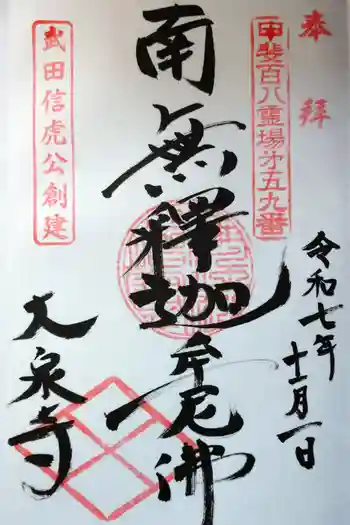 奉拝
甲斐百八霊場第五九番
令和七年
十一月一日
南無釋迦牟尼佛
武田信虎公創建
大泉寺